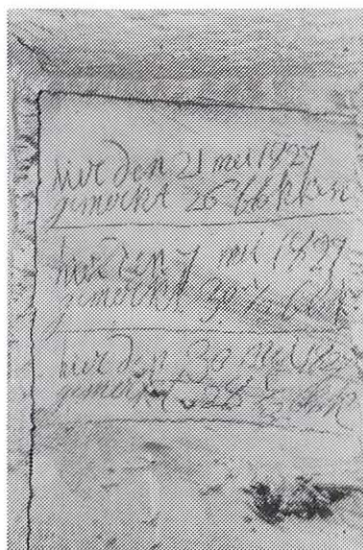 hier den 21 mei 1927
gemerkt 26 blokken
hier den 7 mei
gemerkt 30 ½ blok
hier den 30 mei
gemerkt 28 ½ blok